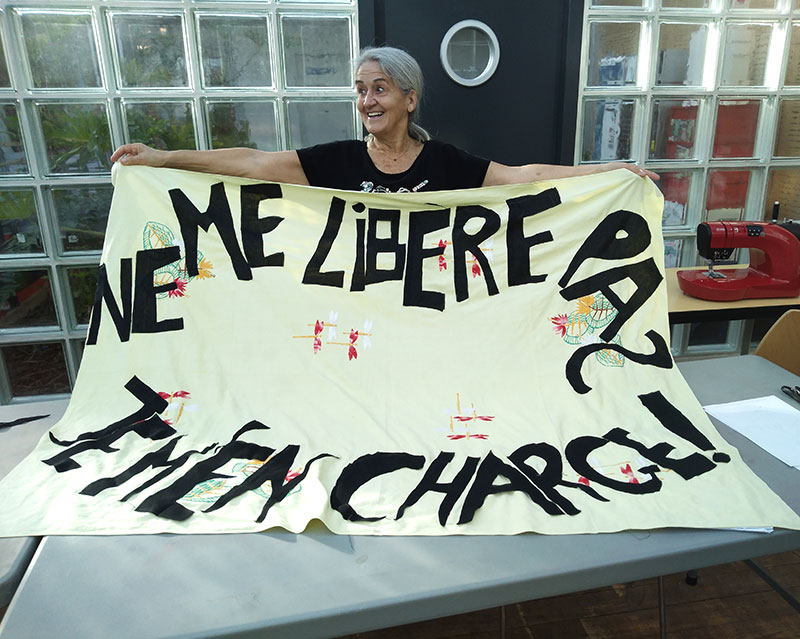 NE ME LIBERE PAS
JE M'EN CHARGE!